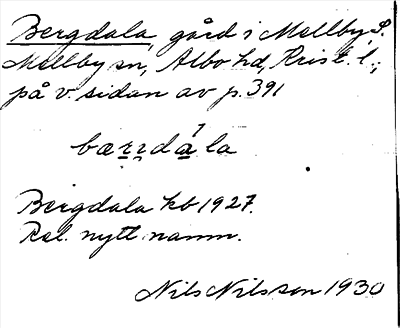 Bergdala, gård i Mellby, S.
Mellby sn, Albo hd, Krist. l.,
på v. sidan av p. 391
bærɪdála
Bergdala kb 1927.
Rel. nytt namn.
Nils Nilsson 1930